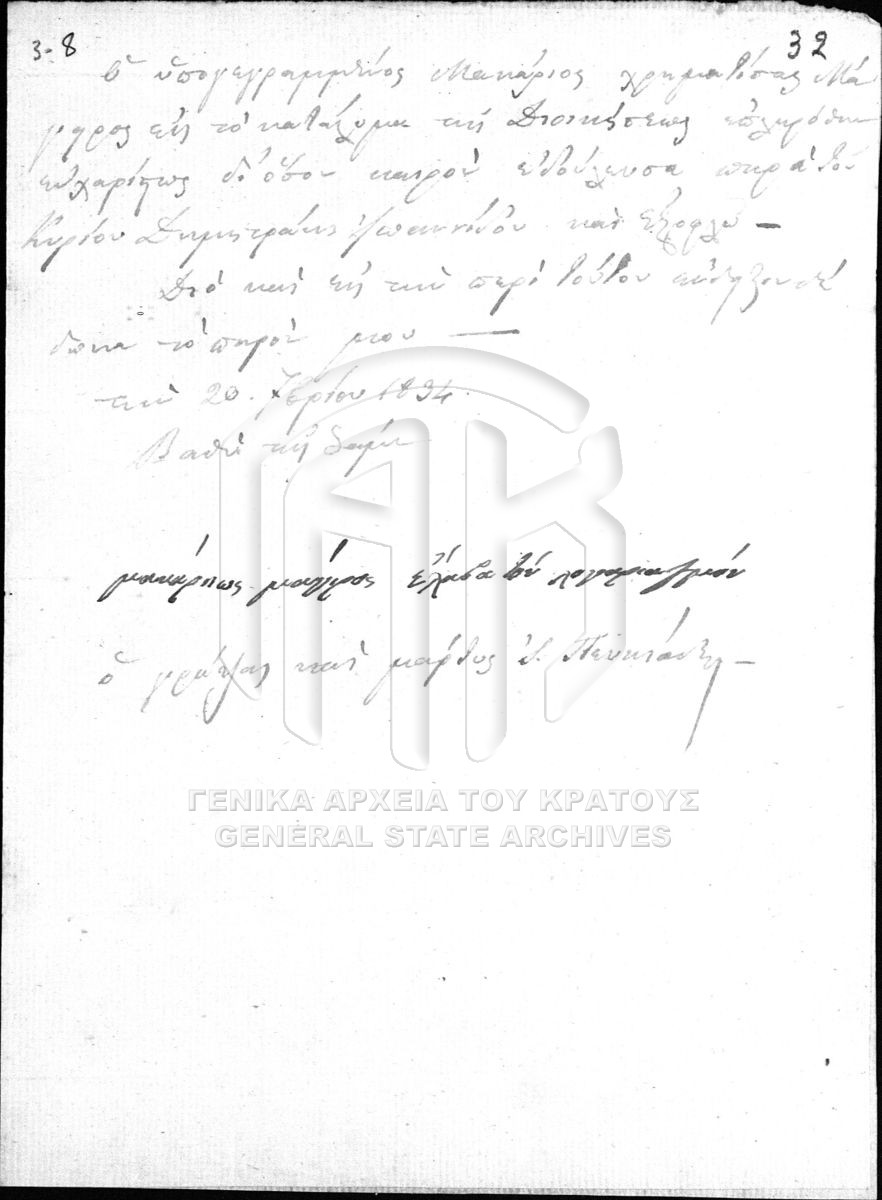 3-8
32
Ὁ ὑπογεγραμμένος Μακάριος χρηματίσας Μά
γηρος εἰς τὸ κατάλυμα τῆς Διοικήσεως ἐπληρόθην
εὐχαρίστως δι' ὅσον καιρὸν ἐδούλευσα παρὰ τοῦ
Κυρίου Δημητράκη καὶ ἐξοφλῶ —
Διὸ καὶ εἰς τὴν περὶ τούτου ἔνδειξιν δέ
δωκα τὸ παρόν μου —
τὴν 20. 7βρίου 1834.
Βαθὺ τῆς Σάμου
μακάριως μάγγιρος ἔλαβα τὸν λογαριασμόν
ὁ γράψας καὶ μάρτυς
ΓΕΝΙΚΑ ΑΡΧΕΙΑ ΤΟΥ ΚΡΑΤΟΥΣ
GENERAL STATE ARCHIVES